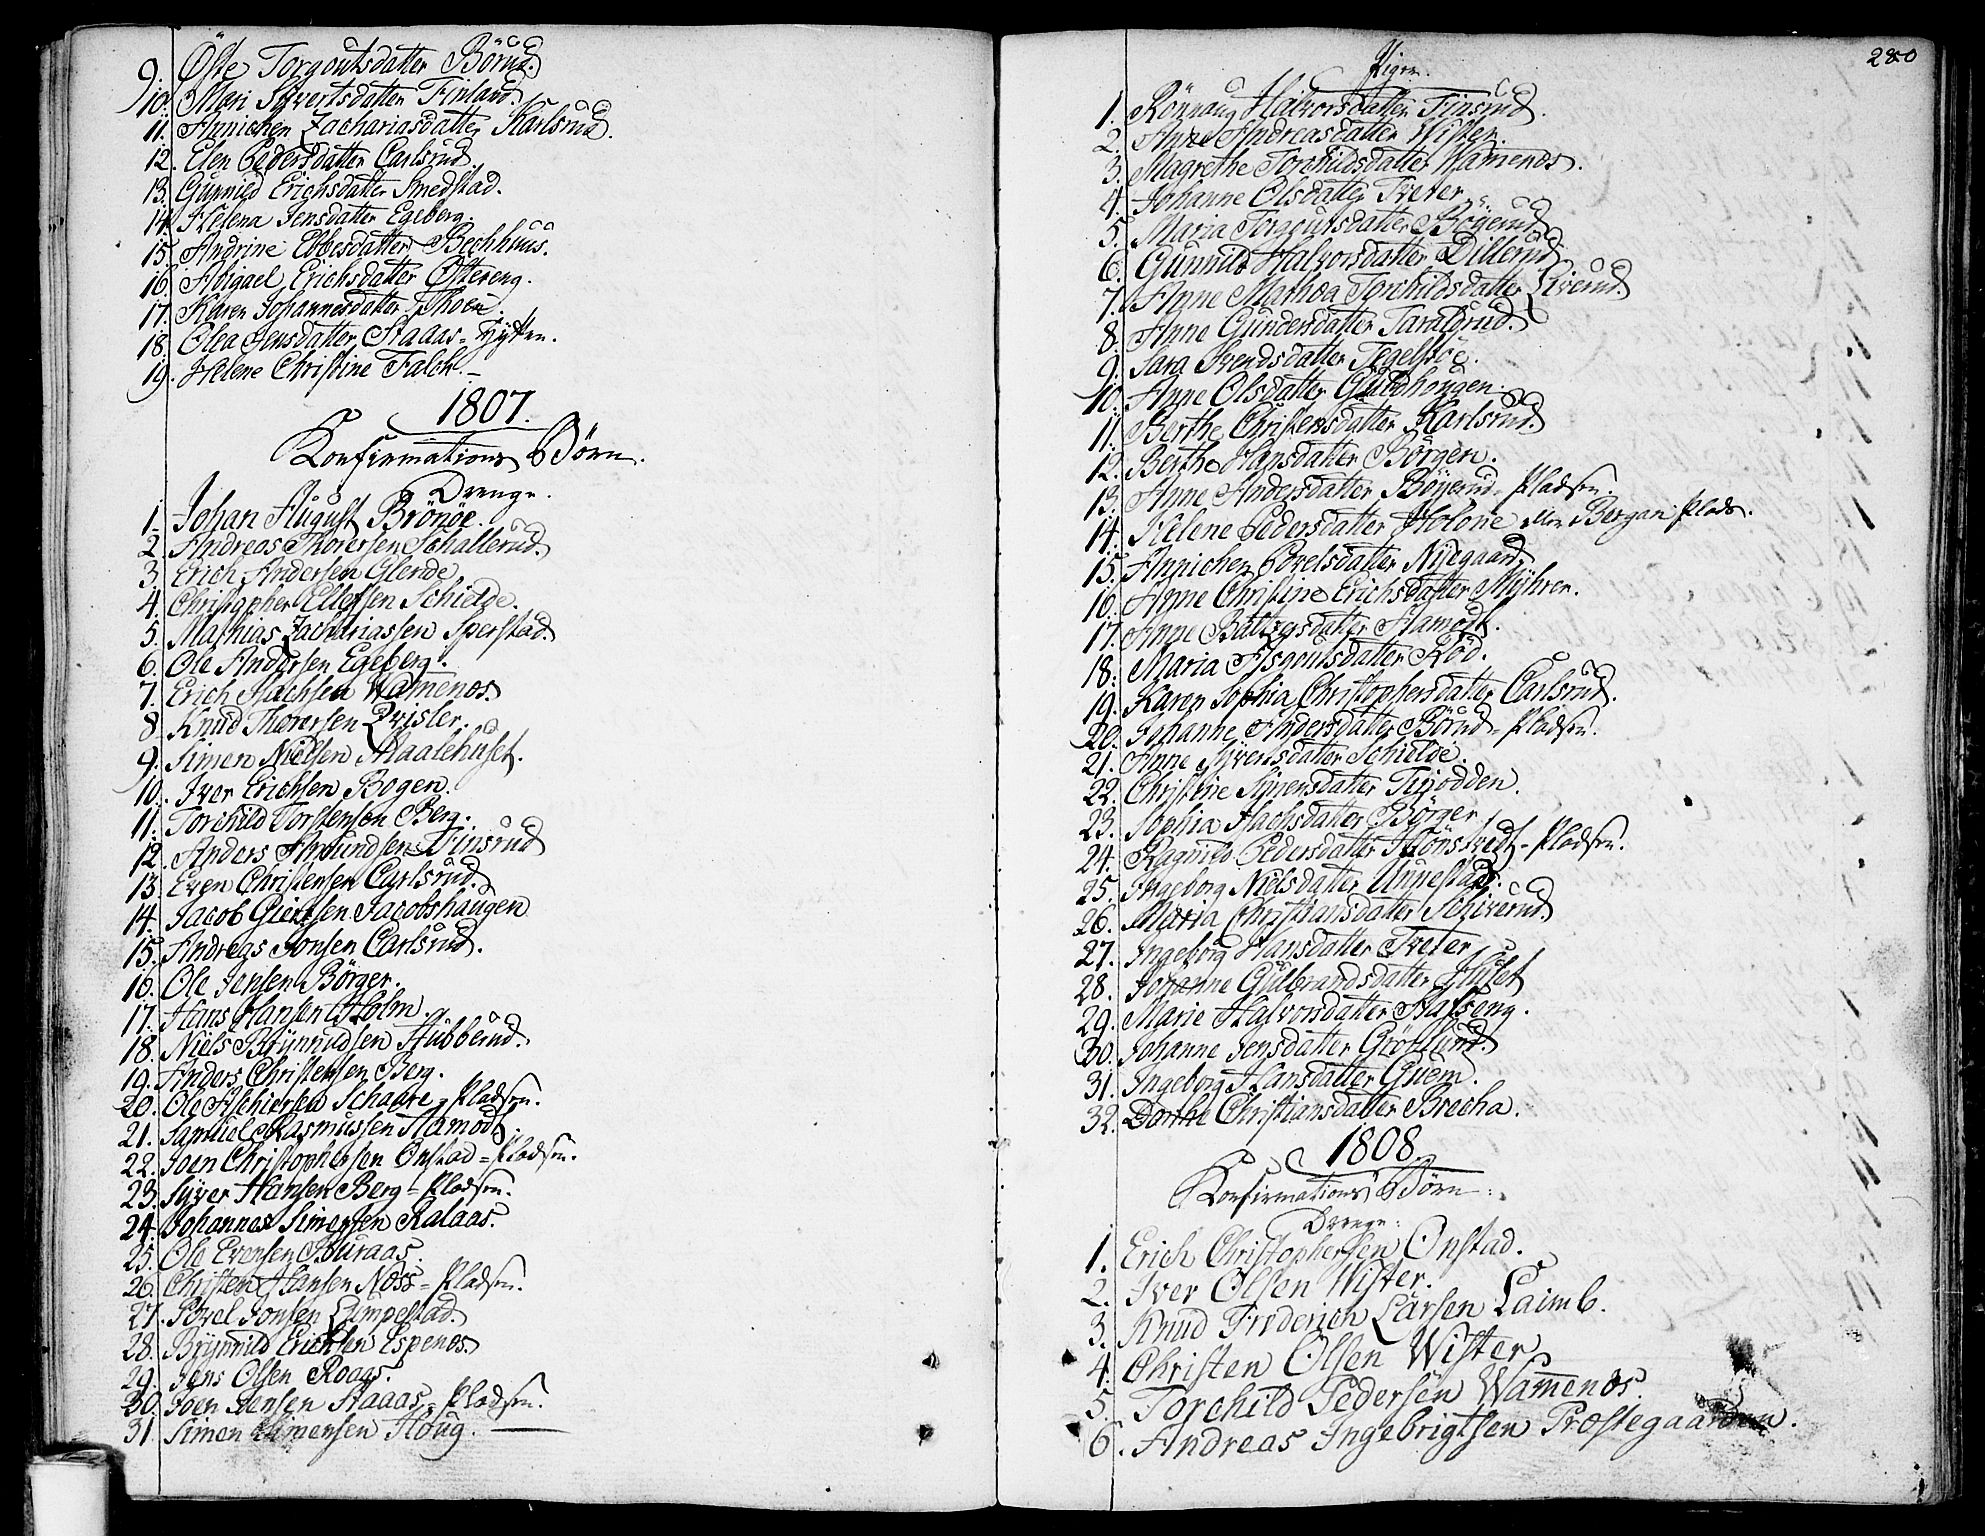 9. Öste Torgoutsdatter Börud.
10. Mari Sivertsdatter Finland.
11. Annichen Zachariasdatter Karlsrud.
12. Elen Pedersdatter Carlsrud.
13. Gunnild Erichsdatter Smedstad.
14. Helena Jensdatter Egeberg.
15. Andrine Ebbesdatter Bechhuus.
16. Abigael Erichsdatter Östereng.
17. Karen Johannesdatter
18. Olea Jensdatter Aaaas-Hytten.
19. Helene Christine Falch.
1807.
Konfirmations Börn.
Drenge.
1. Johan August Brönöe.
2. Andreas Thoresen Schallerud.
3. Erich Andersen Glende
4. Christopher Ellefsen Schielde.
5. Mathias Zachariassen Sperstad.
6. Ole Andersen Egeberg.
7. Erich Aachsen Wamenos.
8. Knud Thoresen Qvisler.
9. Simen Nielsen Haalehuset.
10. Iver Erichsen Bogen.
11. Torchild Torstensen Berg.
12. Anders Amundsen Finsrud
13. Even Christensen Carlsrud.
14. Jacob Giertsen Jacobshaugen
15. Andreas Jonsen Carlsrud.
16. Ole Jensen Börger.
17. Hans Hansen Holm.
18. Niels Brynnildsen Hubberud.
19. Anders Christensen Berg.
20. Ole Aschiersen Schaare-Pladsen.
21. Samuel Rasmussen Aamodt.
22. Joen Christophersen Onstad-Pladsen.
23. Syver Hansen Berg-Pladsen.
24. Johannes Simensen Ralaas.
25. Ole Evensen Bouraas.
26. Christen Hansen Noss-Pladsen.
27. Povel Jonsen Lumpestad.
28. Brynnild Erichsen Espenes.
29. Jens Olsen Roaas.
30. Joen Jensen Aaaas-Pladsen.
31. Simen Simensen Houg.
280
Piger.
1. Rönnaug Halvorsdatter Finsrud.
2. Anne Andreasdatter Wister.
3. Magrethe Torchildsdatter Wamenos.
4. Johanne Olsdatter Tveter.
5. Maria Torgoutsdatter Böyerud
6. Gunnild Halvorsdatter Dillerud
7. Anne Mathea Torchildsdatter Siverud.
8. Anne Gundersdatter Taraldrud.
9. Sara Svendsdatter Tegelsöe.
10. Anne Olsdatter Guldhougen.
11. Berthe Christensdatter Karlsrud.
12. Berthe Hansdatter Börgen.
13. Anne Andersdatter Böyerud-Pladsen.
14. Helene Pedersdatter Holone Bergan Plads.
15. Annichen Povelsdatter Nyegaard
16. Anne Christine Erichsdatter Myhrer.
17. Anne Baltzersdatter Aamodt.
18. Maria Asgoutsdatter Röd.
19. Karen Sophia Christophersdatter Carlsrud.
20. Johanne Andersdatter Börud-Pladsen.
21. Anne Syversdatter Schielde.
22. Christine Syversdatter Tiiodden.
23. Sophia Aachsdatter Börger
24. Ragnild Pedersdatter Hönstvedt-Pladsen.
25. Ingeborg Nielsdatter Unnestad.
26. Maria Christiansdatter Schiverud
27. Ingeborg Hansdatter Tveter
28. Johanne Gulbrandsdatter Huset
29. Marie Halvorsdatter Aasseng.
30. Johanne Jensdatter Gröslund.
31. Ingeborg Hansdatter Guem.
32. Dorthe Christiansdatter Brecha.
1808.
Konfirmations Börn.
Drenge.
1. Erich Christophersen Onstad.
2. Iver Olsen Wister.
3. Knud Frederich Larsen Laimb.
4. Christen Olsen Wister.
5. Torchild Pedersen Wamenos.
6. Andreas Ingebrigtsen Præstegaarden.